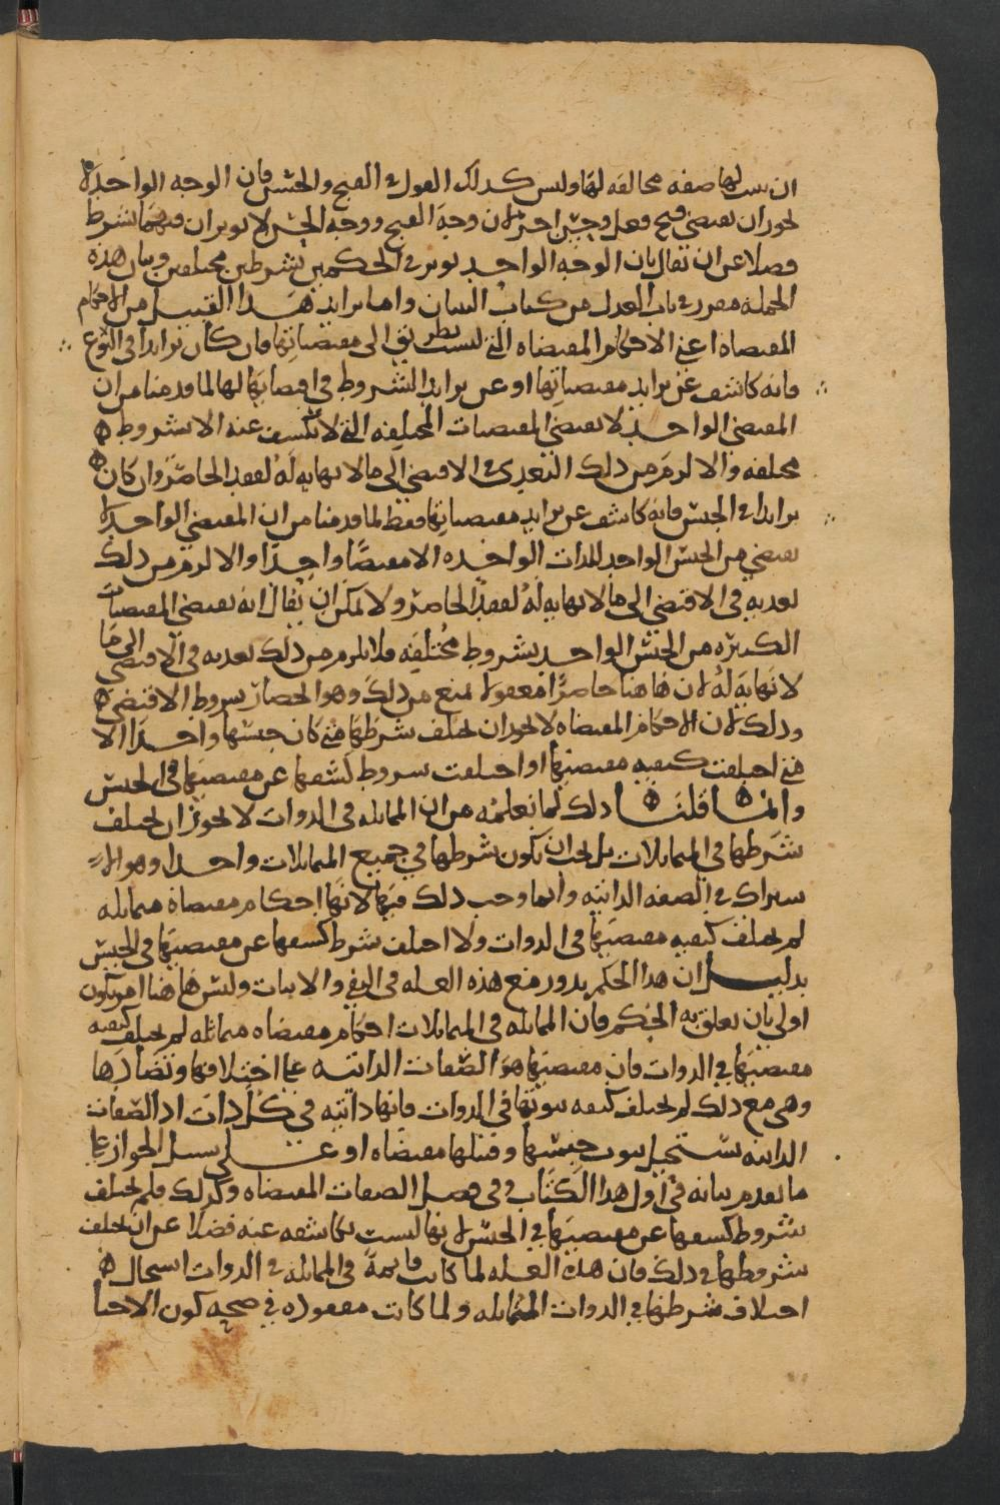 ان يثبت لها صفه مخالفه لها وليس كذلك القول في القبح والحسن فان الوجه الواحد لا
يجوز ان يقتضي قبح فعل وحسن اخر لان وجه القبح ووجه الحسن لا يوثران فيهما بشرط
فضلا عن ان يقال بان الوجه الواحد يوثر في الحكمين بشرطين مختلفين وبيان هذه
الجمله مقرر في باب العدل من كتاب البيان واما تزايد هذا القبيل من الاحكام
المقتضاه اعني الاحكام المقتضاه التي ليست بطريق الى مقتضياتها فان كان تزايدا في النوع
فانه كاشف عن تزايد مقتضياتها او عن تزايد الشروط في اقتضايها لها لما قدمنا من ان
المقتضي الواحد لا يقتضي المقتضيات المختلفه التي لا تكشف عنه الا بشروط
مختلفه والا لزم من ذلك التعدي في الاقتضي الى ما لا نهايه له لفقد الحاصر وان كان
تزايدا في الجنس فانه كاشف عن تزايد مقتضياتها فقط لما قدمنا من ان المقتضي الواحد لا
يقتضي من الجنس الواحد للذات الواحده الا مقتضا واحدا والا لزم من ذلك
تعديه في الاقتضي الى ما لا نهايه له لفقد الحاصر ولا يمكن ان يقال انه يقتضي المقتضيات
الكثيره من الجنس الواحد بشروط مختلفه فلا يلزم من ذلك تعديه في الاقتضي الى ما
لا نهاية له لان هاهنا حاصرا معقولا يمنع من ذلك وهو انحصار شروط الاقتضي
وذلك لان الاحكام المقتضاه لا يجوز ان يختلف شرطها متى كان جنسها واحدا الا
متى اختلفت كيفيه مقتضيها او اختلفت شروط كشفها عن مقتضيها في الجنس
وانما قلنا ذلك لما نعلمه من ان المماثله في الذوات لا يجوز ان يختلف
شرطها في المتماثلات بل يجب ان يكون شرطها في جميع المتماثلات واحدا وهو الا
شتراك في الصفه الذاتيه وانما وجب ذلك فيها لانها احكام مقتضاه متماثله
لم يختلف كيفيه مقتضيها في الذوات ولا اختلف شرط كشفها عن مقتضيها في الجنس
بدليل ان هذا الحكم يدور مع هذه العله في النفي والاثبات وليس هاهنا امر يكون
اولى بان يعلق به الحكم فان المماثله في المتماثلات احكام مقتضاه متماثله لم يختلف كيفيه
مقتضيها في الذوات فان مقتضيها هو الصفات الذاتيه على اختلافها وتضادها
وهي مع ذلك لم يختلف كيفيه ثبوتها في الذوات فانها ذاتيه في كل ذات اذ الصفات
الذاتيه يستحيل ثبوت جنسها وقبيلها مقتضاه او على سبيل الجواز على
ما تقدم بيانه في اول هذا الكتاب في فصل الصفات المقتضاه وكذلك فلم يختلف
شروط كشفها عن مقتضيها في الجنس لانها ليست بكاشفه عنه فضلا عن ان يختلف
شروطها في ذلك فان هذه العله لما كانت قايمة في المماثله في الذوات استحال
اختلاف شرطها في الذوات المتماثله ولما كانت مفقوده في صحه كون الاحيا